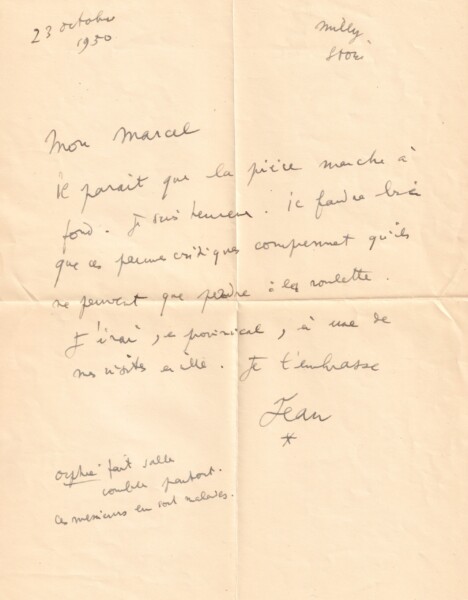 23 octobre
1950
Milly
S et O
Mon Marcel
Il parait que la pièce marche à
fond. Je suis heureux. Il faudra bien
que ces pauvres critiques comprennent qu'ils
ne peuvent que perdre à la roulette.
J'irai, en provincial, à une de
mes visites en ville. Je t'embrasse
Jean
*
Orphée fait salle
comble partout.
Ces messieurs en sont malades.